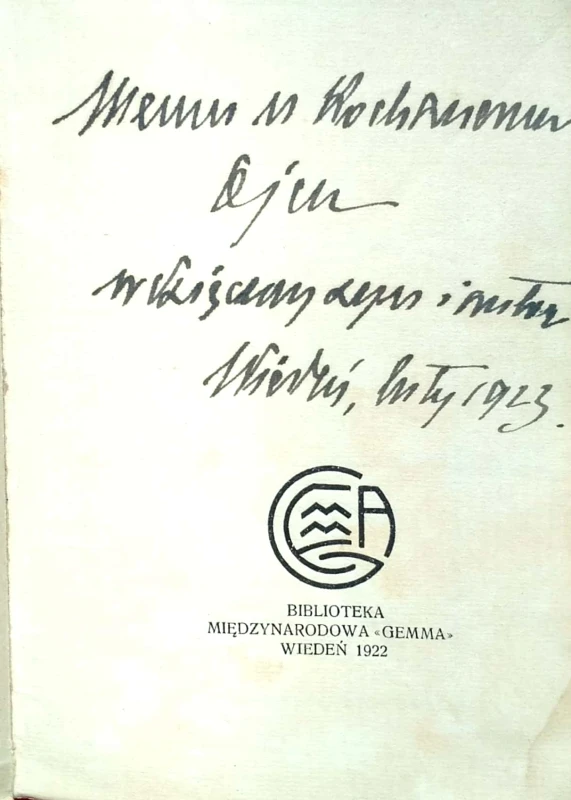 Memu Kochanemu
Ojcu
wdzięczny i autor
Wiedeń, luty 1923.
BIBLIOTEKA
MIĘDZYNARODOWA «GEMMA»
WIEDEŃ 1922